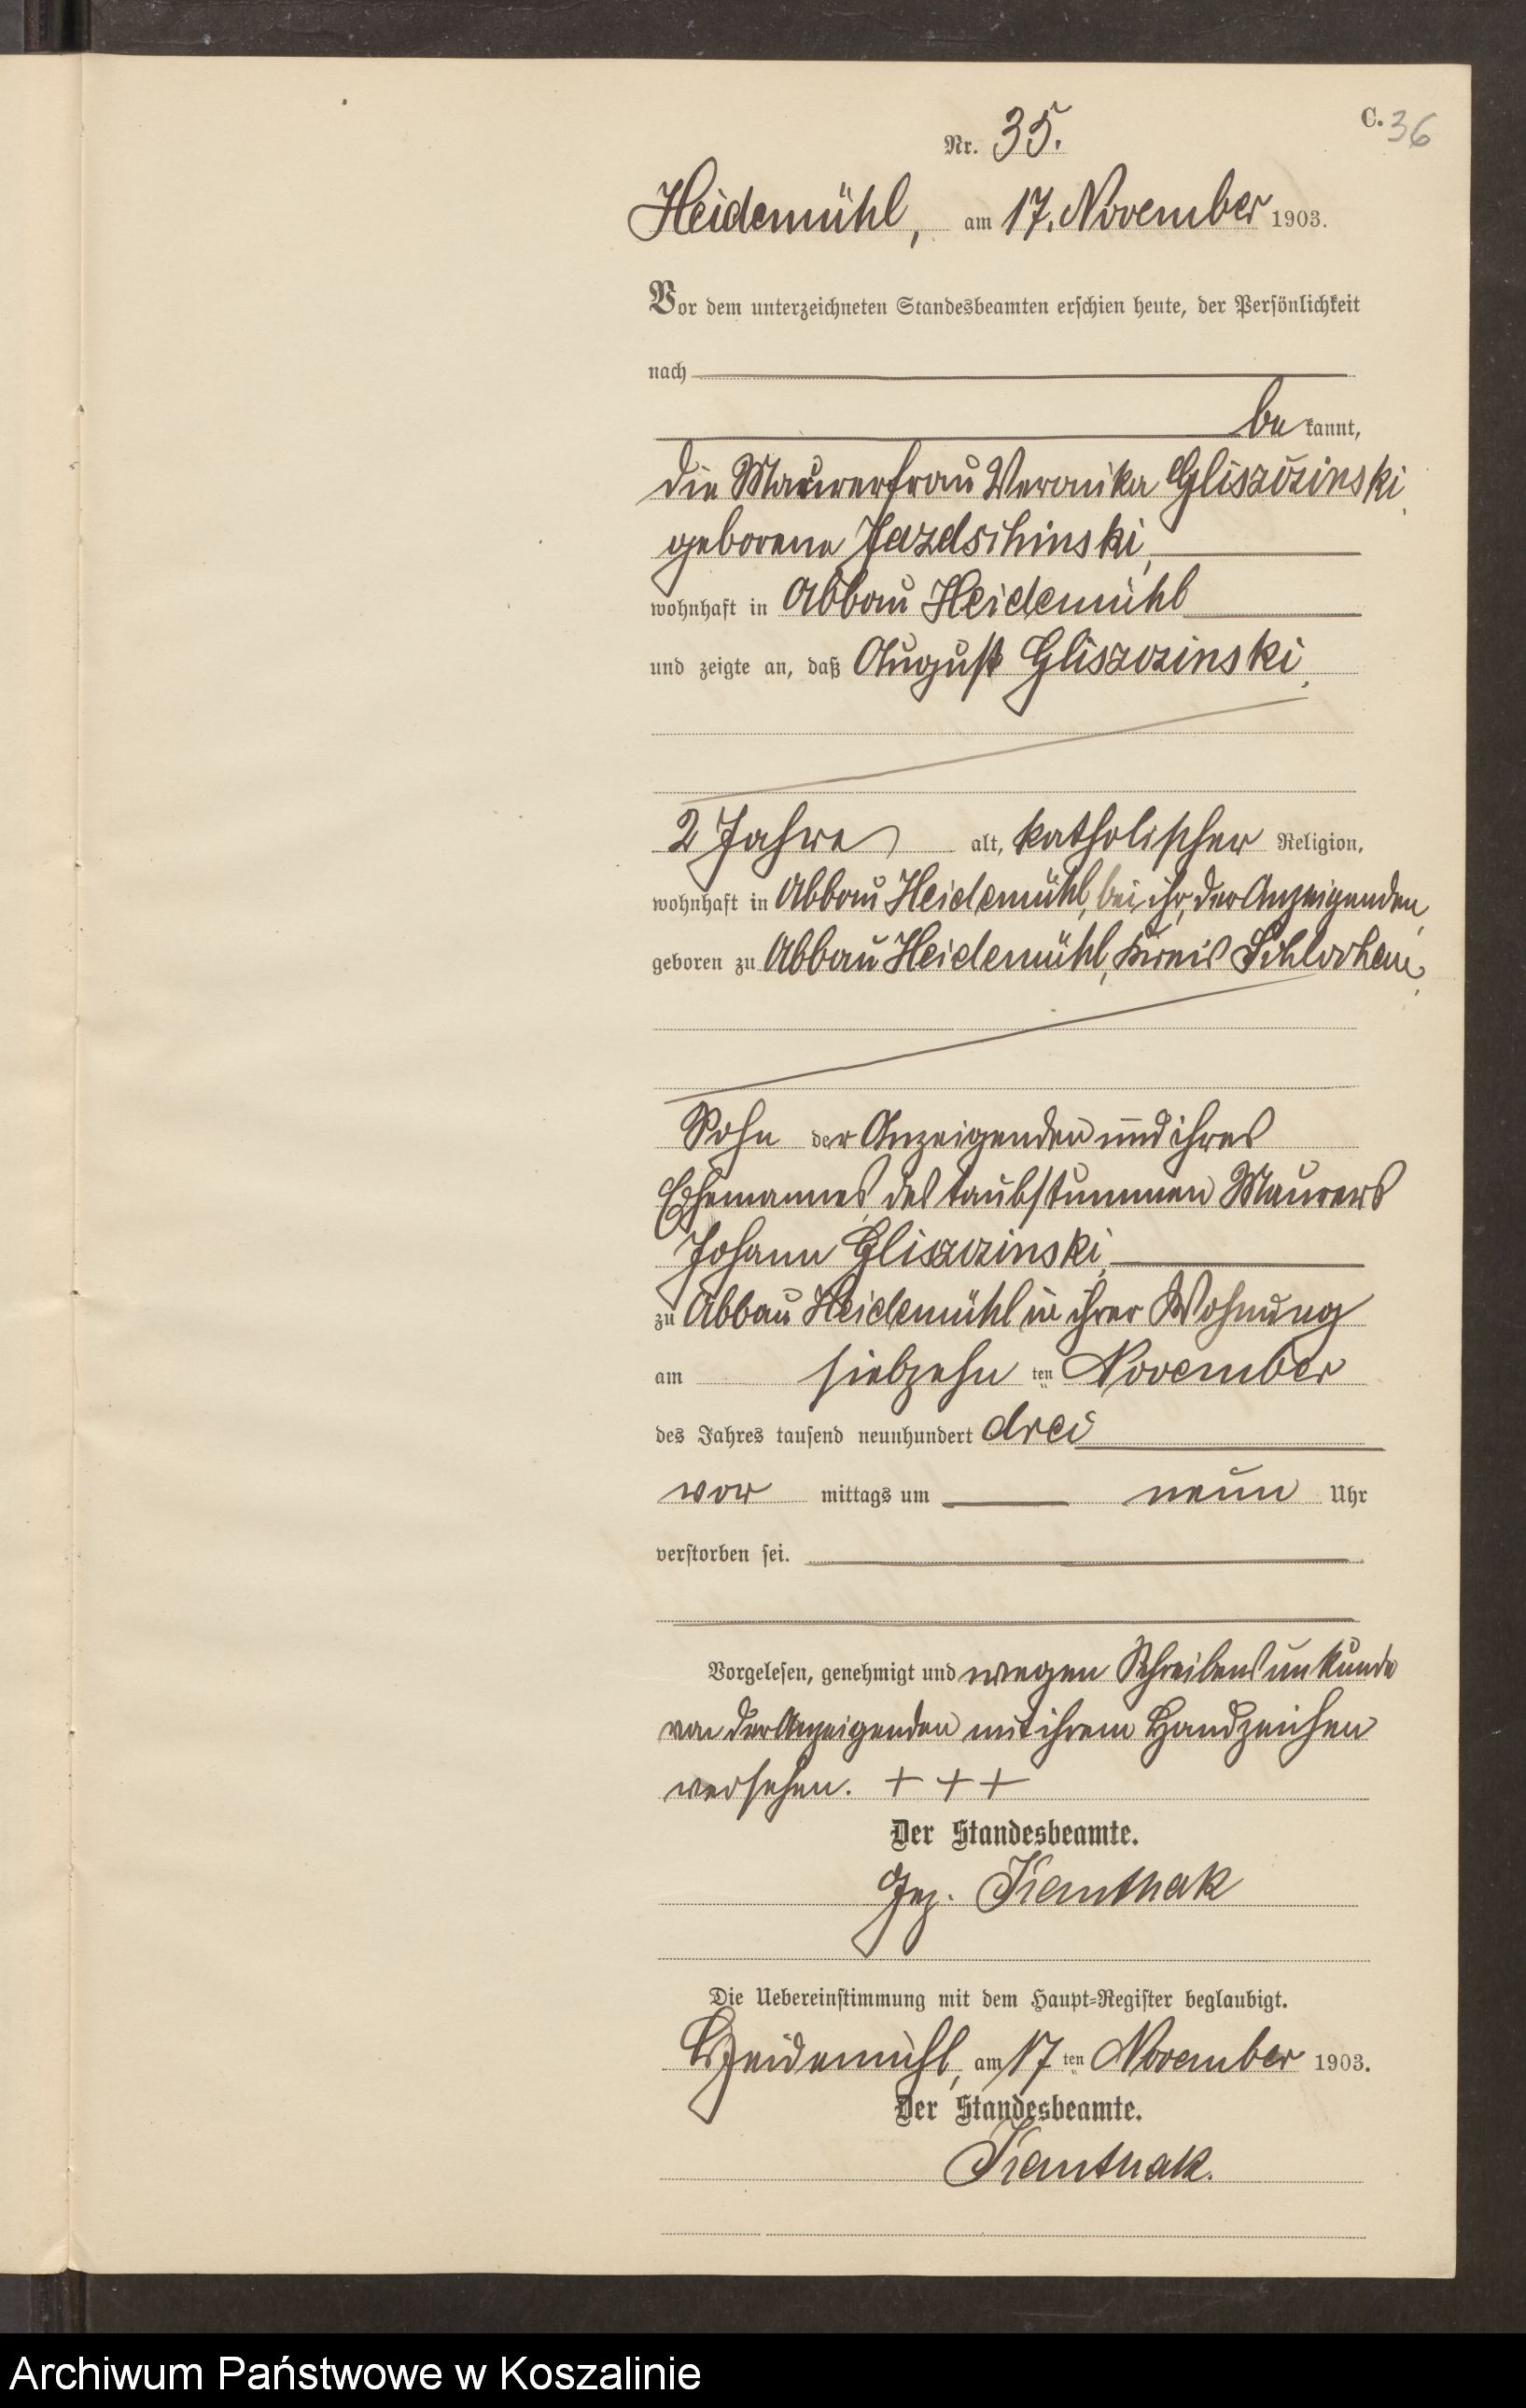 C. 36
Nr. 35.
Heidemühl, am 17. November 1903.
Vor dem unterzeichneten Standesbeamten erschien heute, der Persönlichkeit
nach
be kannt,
die Maurerfrau Veronika Gliszczinski,
geborene Jazdschinski,
wohnhaft in Abbau Heidemühl
und zeigte an, daß August Gliszczinski,
2 Jahre alt, katholischer Religion,
wohnhaft in Abbau Heidemühl, bei ihr, der Anzeigenden,
geboren zu Abbau Heidemühl, Kreis Schlochau,
Sohn der Anzeigenden und ihres
Ehemannes, des taubstummen Maurers
Johann Gliszczinski,
zu Abbau Heidemühl in ihrer Wohnung
am siebzehn ten November
des Jahres tausend neunhundert drei
vor mittags um neun Uhr
verstorben sei.
Vorgelesen, genehmigt und wegen Schreibensunkunde
von der Anzeigenden mit ihrem Handzeichen
versehen. + + +
Der Standesbeamte.
Gez.
Die Uebereinstimmung mit dem Haupt-Register beglaubigt.
Heidemühl, am 17 ten November 1903.
Der Standesbeamte.
Archiwum Państwowe w Koszalinie